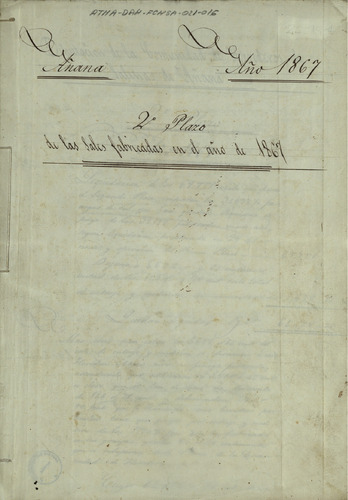 ATHA-DAH-FCMSA-021-015
Añana
Año 1867
2º Plazo
de las Sales fabricadas en el año de 1867